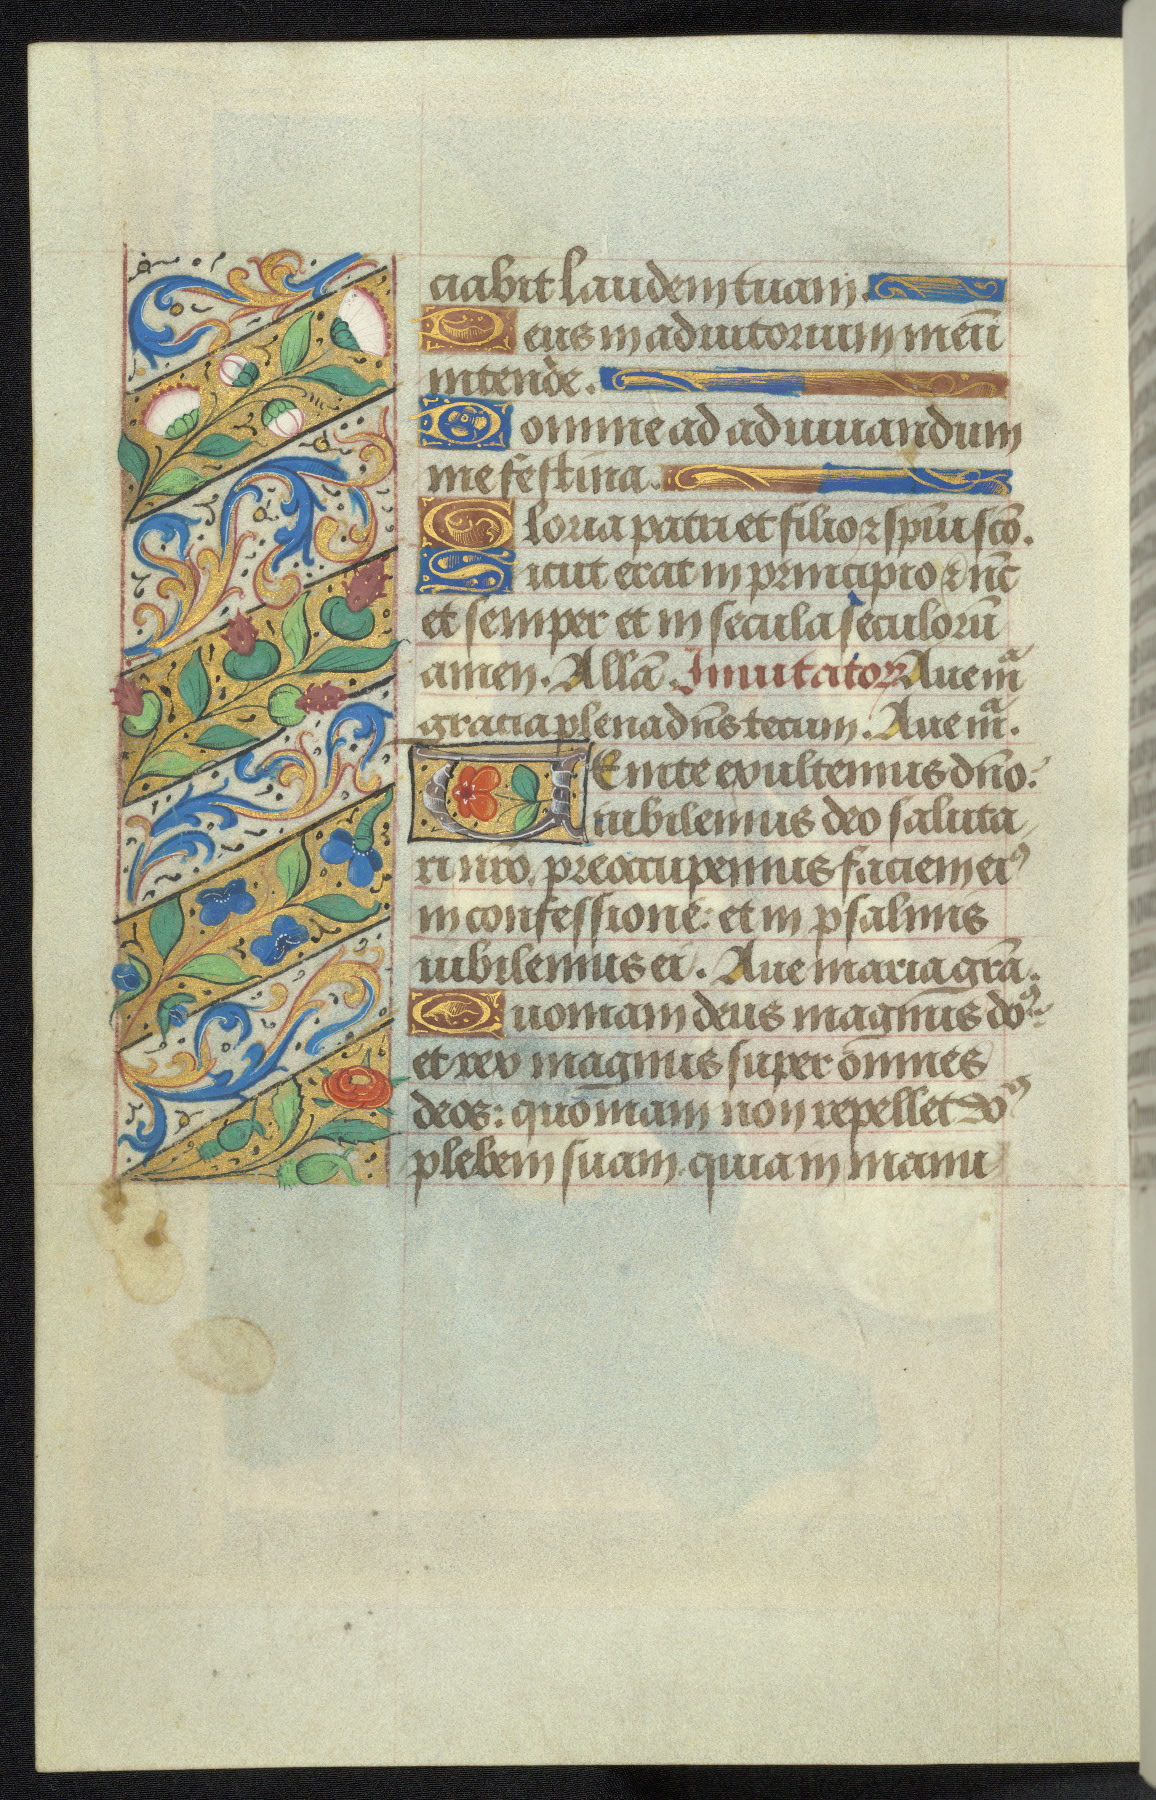 ciabit laudem tuam.
Deus in adiutorium meũ
intende.
Domine ad adiuuandum
me festina.
Gloria patri et filio ⁊ spũi scõ.
Sicut erat in principio ⁊ nc̃
et semper et in secula seculorũ
amen. Allã. Inuitatoꝝ Aue mᵃ
gracia plena dñs tecum. Aue mᵃ.
VEnite exultemus dño.
iubilemus deo saluta
ri nr̃o, preoccupemus faciem eiꝰ
in confessione: et in psalmis
iubilemus ei. Aue maria grã.
Quoniam deus magnus do
et rex magnus super omnes
deos: quoniam non repellet
plebem suam quia in manu